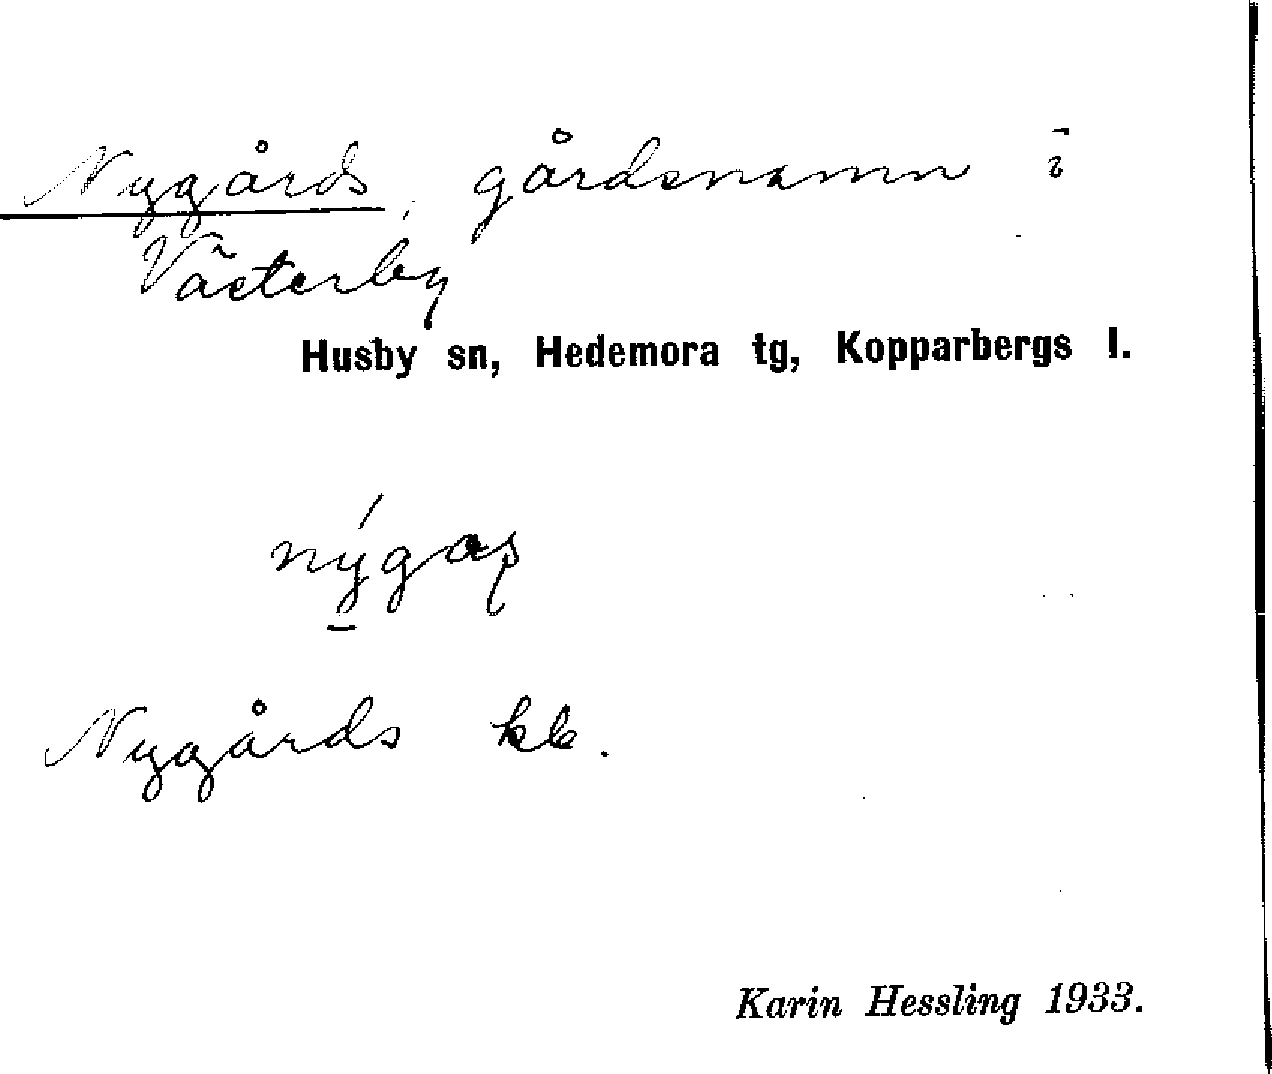 Nygårds, gårdsnamn i
Västerby
Husby sn, Hedemora tg, Kopparbergs l.
Nygårds kb.
Karin Hessling 1933.